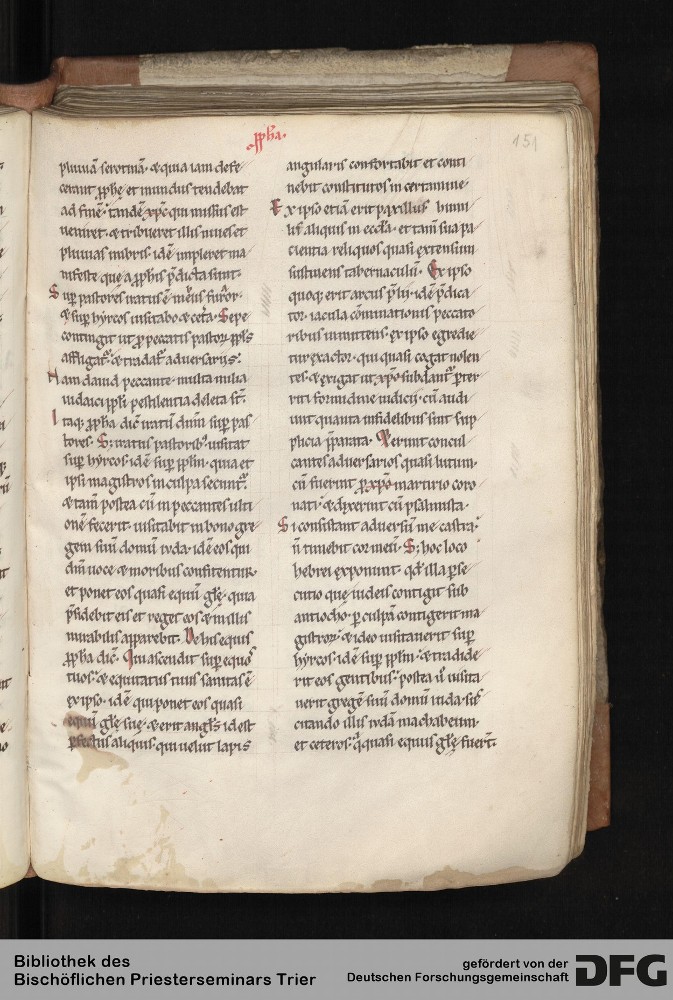 ꝓph̄a.
151
pluuiā serotinā. & quia iam defe
cerant ꝓphę et mundus tendebat
ad finē. tandē xp̄c qui missus est
ueniret. & tribueret illis niues et
pluuias imbris. idē impleret ma
nifeste que a ꝓphis p̄dicta sunt.
Sup̄ pastores iratus ē meus furor.
& sup̄ hyrcos uisitabo & cet̄a. Sepe
contingit ut ꝓ peccatis pastoꝝ ppl̄s
affligat̄. & tradat̄ aduersarijs.
Nam dauid peccante. multa milia
iudaici ppl̄i pestilentia deleta sūt.
Itaq; ꝓph̄a dic̄ iratū dn̄m sup̄ pas
tores. S; iratus pastorib; uisitat
sup̄ hyrcos. idē sup̄ ppl̄m. quia et
ipsi magistros in culpa secunt̄.
& tam̄ postea cū in peccantes ulti
onē fecerit. uisitabit in bono gre
gem suū domū iuda. idē eos qui
dn̄m uoce & moribus confitentur.
et ponet eos quasi equū gl̄ę. quia
p̄sidebit eis et reget eos & in illis
mirabilis apparebit. De his equis
ꝓph̄a dic̄. Qui ascendit sup̄ equos
tuos. & equitatus tuus sanitas ē
ex ipso. idē qui ponet eos quasi
equū gl̄ę suę. & erit angl̄s id est
ꝑfectus aliquis. qui uelut lapis
angularis confortabit et conti
nebit constitutos in certamine.
Ex ipso etiā erit paxillus humi
lis aliquis in eccl̄a. et tam̄ sua pa
cientia reliquos quasi extensum
sustinens tabernaculū. Ex ipso
quoq; erit arcus p̄lii. idē p̄dica
tor. iacula cōminationis peccato
ribus inmittens. ex ipso egredie
tur exactor. qui quasi cogat nolen
tes. & exigat ut xp̄o subdant̄ ꝑter
riti formidine iudicii. cū audi
unt quanta infidelibus sint sup
plicia p̄parata. Et erunt concul
cantes aduersarios quasi lutum.
cū fuerint ꝑ xp̄o martirio coro
nati. & dixerint cū psalmista.
Si consistant aduersū me castra.
ñ timebit cor meū. S; hoc loco
hebrei exponunt. qd̄ illa ꝑse
cutio que iudeis contigit sub
antiocho. ꝑ culpā contigerit ma
gistroꝝ. & ideo uisitauerit sup̄
hyrcos. idē sup̄ ppl̄m. & tradide
rit eos gentibus. postea ū uisita
uerit gregē suū domū iuda. sus
citando illis iudā machabeum.
et ceteros. q̄ quasi equus gl̄ę fuer̄t.
Bibliothek des
Bischöflichen Priesterseminars Trier
gefördert von der
Deutschen Forschungsgemeinschaft
DFG